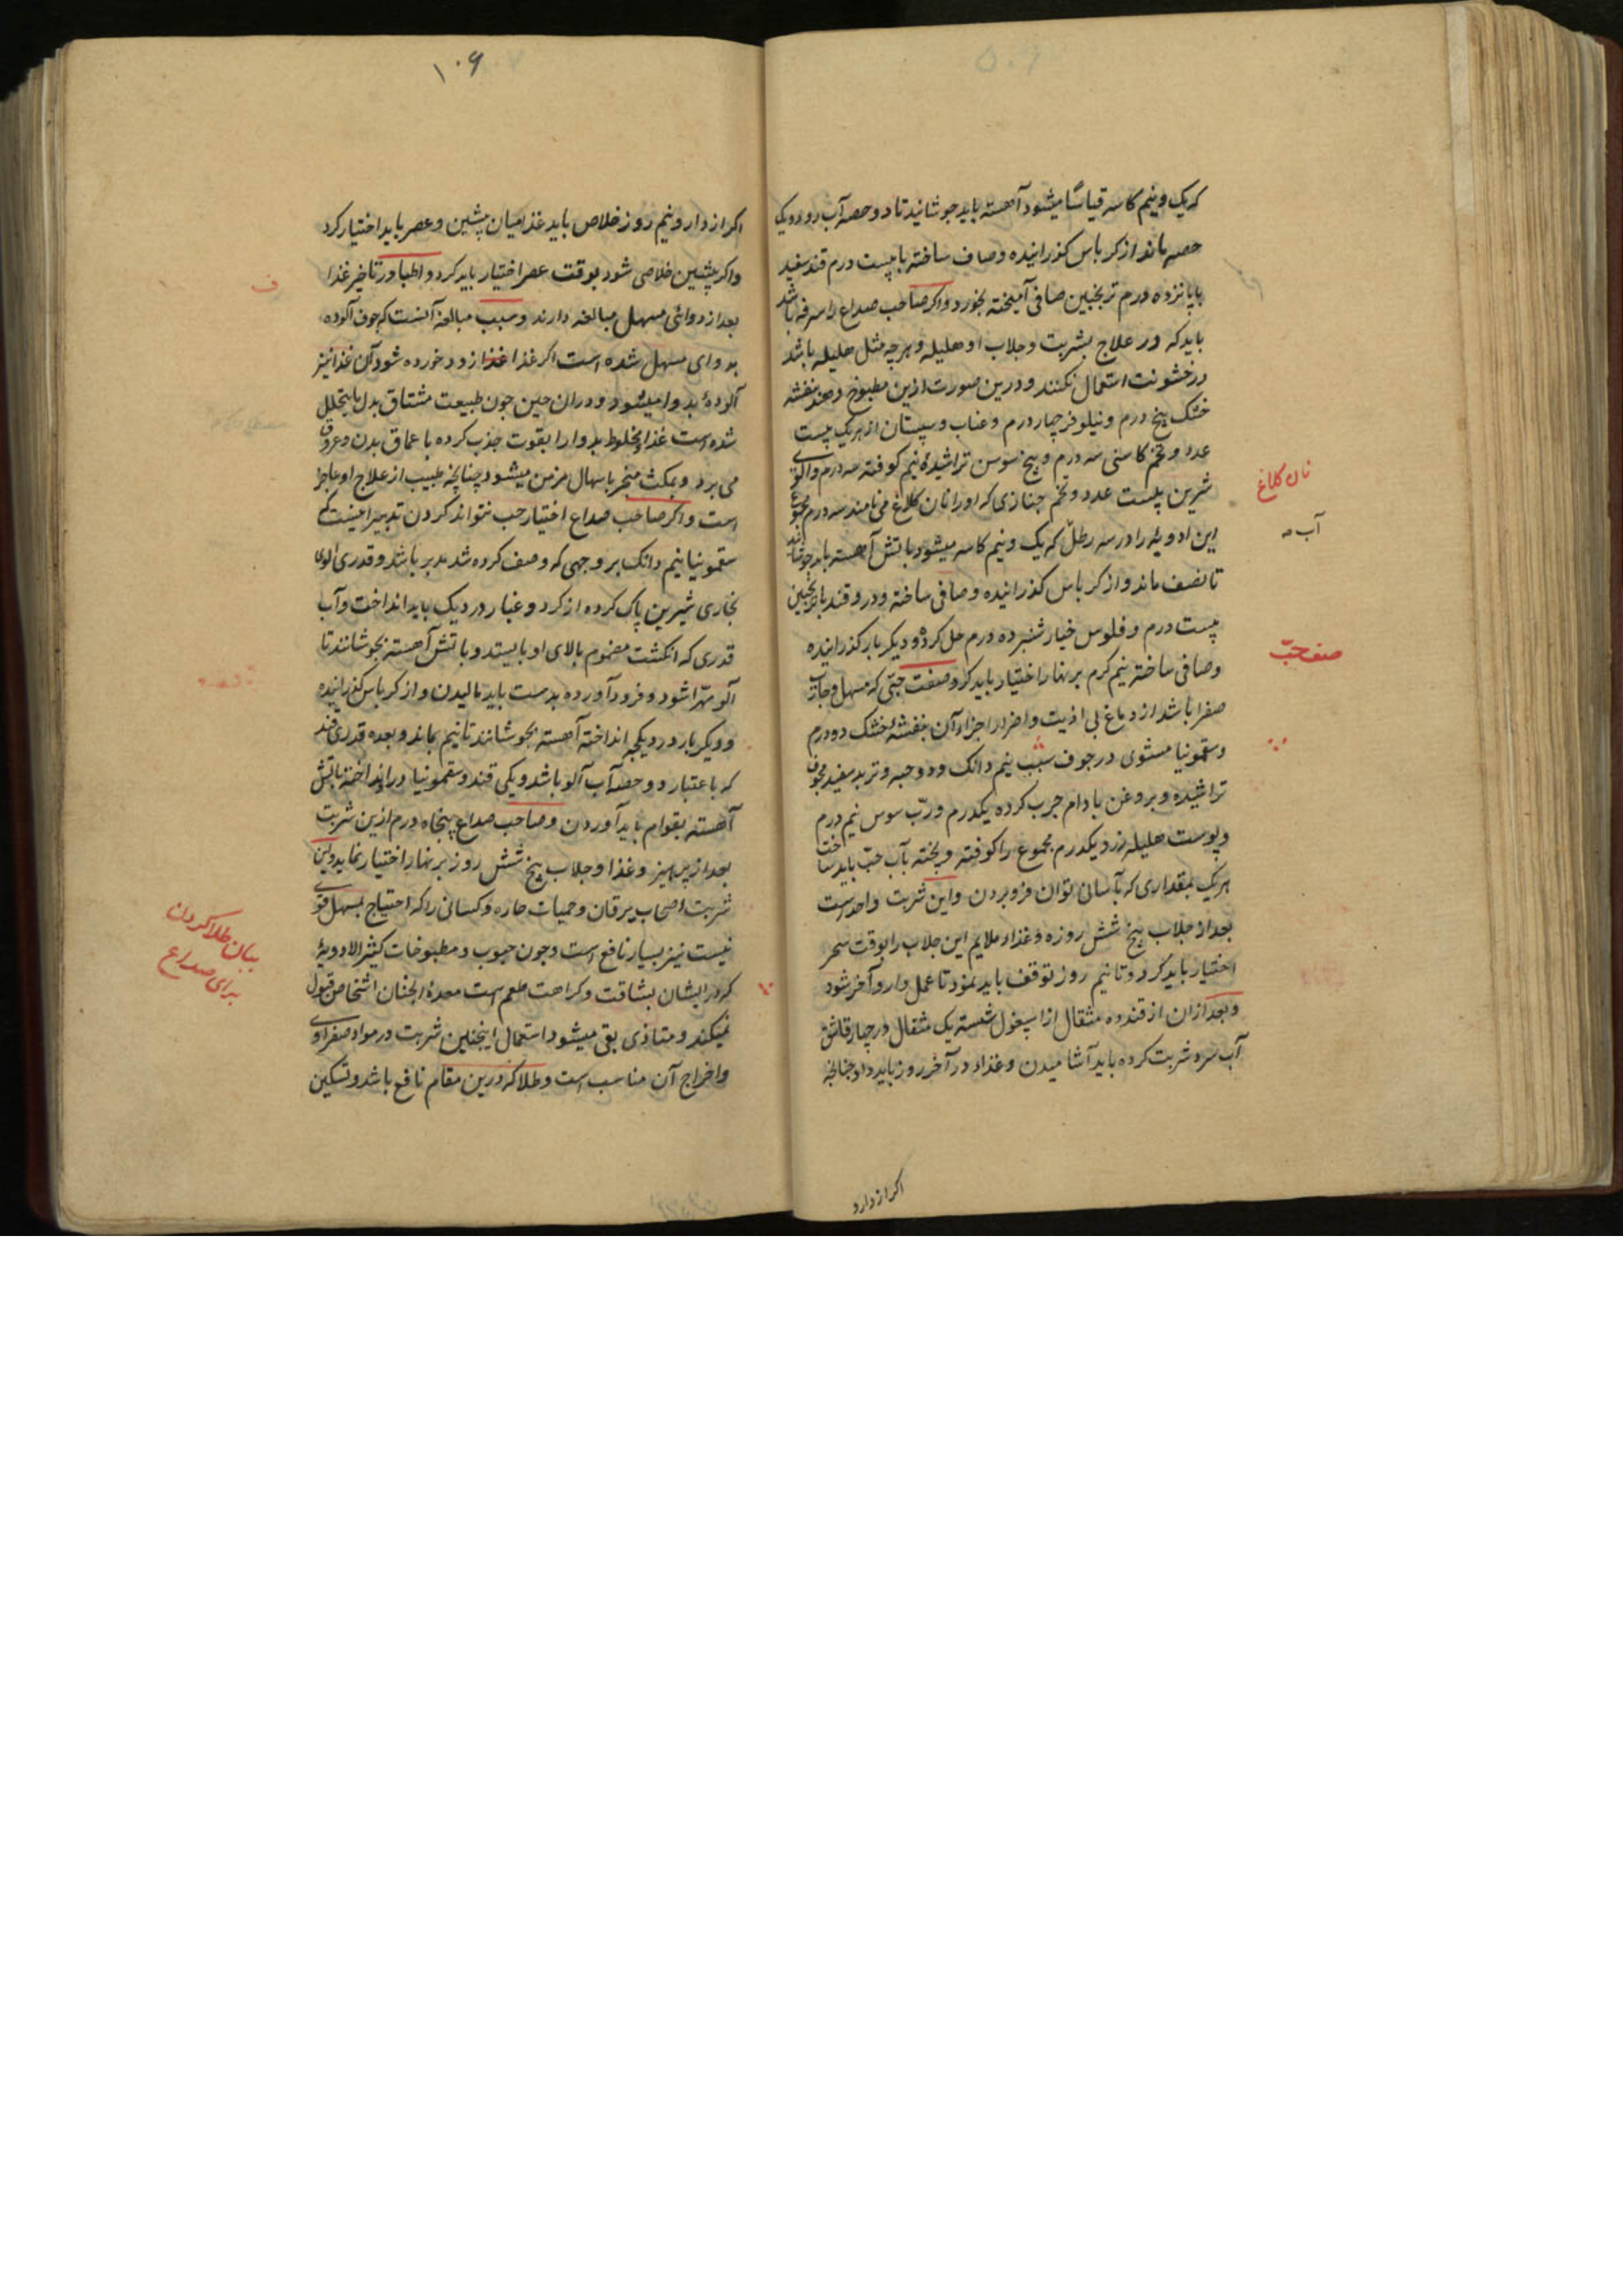 که یک و نیم کاسه قیاسًا میشود آهسته باید جوشانید تا دو حصه آب رود و یک
حصه ماند از کرباس کذرانیده و صاف ساخته با بیست درم قند سفید
با پانزده درم ترنجبین صافی آمیخته بخورد و اکر صاحب صداع را سرفه باشد
باید که در علاج بشربت و جلاب او هلیله و هر چه مثل هلیله باشد
در خشونت استعمال نکنند و درین صورت ازین مطبوخ دهند بنفشه
خشک پنج درم و نیلوفر چار درم و عناب و سپستان از هر یک بیست
عدد و تخم کاسنی سه درم و بیخ سوسن تراشیده نیم کوفته سه درم و آلوی
شیرین بیست عدد و تخم خبازی که او را نان کلاغ می نامند سه درم مجموع
نان کلاغ
این ادویه را در سه رطل که یک و نیم کاسه میشود باتش آهسته باید جوشاند
آب
تا نصف ماند و از کرباس کذرانیده و صافی ساخته و در و قند یا ترنجبین
بیست درم و فلوس خیار شنبر ده درم حل کرده و دیکر بار کذرانیده
و صافی ساخته نیم کرم بر نهار اختیار باید کرد و صفت حبّی که مسهل و جاذب
صفت حبّ
صفرا باشد از دماغ بی اذیت و اضرار اجزاء آن بنفشهٔ خشک دو درم
و سقمونیا مشوی در جوف سیب نیم دانک و دو حبه و تربد سفید مجوف
تراشیده و بروغن بادام جرب کرده یکدرم و ربّ سوس نیم درم
و پوست هلیله زرد یکدرم مجموع را کوفته و بیخته بآب حبّ باید ساخت
هر یک بمقداری که بآسانی توان فرو بردن و این شربت واحد است
بعد از جلاب پنج شش روزه و غذاء ملایم این جلاب را بوقت سحر
اختیار باید کرد و تا نیم روز توقف باید نمود تا عمل دارو آخر شود
و بعد ازان از قند ده مثقال از اسپغول شسته یک مثقال در چار قاشق
آب سرد شربت کرده باید آشامیدن و غذاء در آخر روز باید داد چنانچه
اکر از دارو
۱۰۶
اکر از دارو نیم روز خلاص یابد غذا میان پیشین و عصر باید اختیار کرد
و اکر پیشین خلاص شود بوقت عصر اختیار باید کرد و اطبا در تاخیر غذا
ف
بعد از دوائی مسهل مبالغه دارند و سبب مبالغه آنست که جوف آلوده
بدوای مسهل شده است اکر غذا زود خورده شود آن غذا نیز
آلودهٔ بدوا میشود و دران حین چون طبیعت مشتاق بدل ما یتحلل
شده است غذا مخلوط بدوا را بقوت جذب کرده باعماق بدن و عروق
می برد و بمکث منجر باسهال مزمن میشود چنانچه طبیب از علاج او عاجز
است و اکر صاحب صداع اختیار حب نتواند کردن تدبیر اینست که
سقمونیا نیم دانک بر وجهی که وصف کرده شد مدبر باشد و قدری آلوی
بخاری شیرین پاک کرده از کرد و غبار در دیک باید انداخت و آب
قدری که انکشت مضموم بالای او بایستد و باتش آهسته بجوشانند تا
آلو مهرّا شود و فرود آورده بدست باید مالیدن و از کرباس کذرانیده
و دیکر بار در دیکچه انداخته آهسته بجوشانند تا نیم بماند و بعده قدری قند
که باعتبار دو حصه آب آلو باشد و یکی قند و سقمونیا درو انداخته باتش
آهسته بقوام باید آوردن و صاحب صداع پنجاه درم ازین شربت
بعد از پرهیز و غذا و جلاب پنج شش روز بر نهار اختیار نماید و این
شربت اصحاب یرقان و حمیات حاره و کسانی را که احتیاج بمسهل قوی
نیست نیز بسیار نافع است و چون حبوب و مطبوخات کثیر الادویهٔ
بیان طلا کردن
برای صداع
که در ایشان بشاقت و کراهت طعم است معدهٔ اینچنان اشخاص قبول
نمیکند و متاذی بقی میشود استعمال اینچنین شربت در مواد صفراوی
و اخراج آن مناسب است و طلا که درین مقام نافع باشد و تسکین